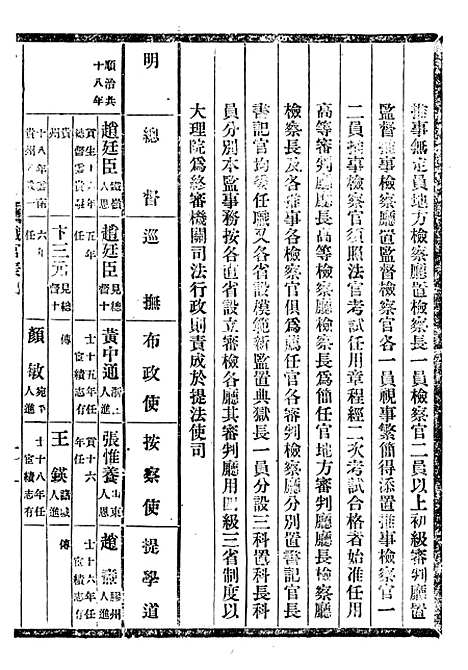 推事無定員地方檢察廳置檢察長一員檢察官二員以上初級審判廳置
監督推事檢察廳置監督檢察官各一員視事繁簡得添置推事檢察官一
二員推事檢察官須照法官考試任用章程經二次考試合格者始准任用
高等審判廳廳長高等檢察長爲簡任官地方審判廳廳長檢察廳
檢察長及各推事各檢察官俱爲薦任官各審判檢察廳分別置書記官長
書記官均委任職又各省設模範新監置典獄長一員分設三科置科長科
員分別本監事務按各直省設立審檢各廳其審判廳用四級三省制度以
大理院爲終審機關司法行政則責成於提法使司
明 總督巡撫 布政使 按察使 提學道
順治共
十八年
趙廷臣 人恩
貢生十六年任
總督
十八年
趙廷臣 見總督
十五年任
卞三元 見總督
十六年任
黃中通 人進
士十五年任
宦績志有
傳
顏敏 宛平人進
張惟養 山東人恩
貢十六
王鍈 諸城人進
士十八年任
宦績志有
趙 膠州人進
士十六年任
宦績志有
傳